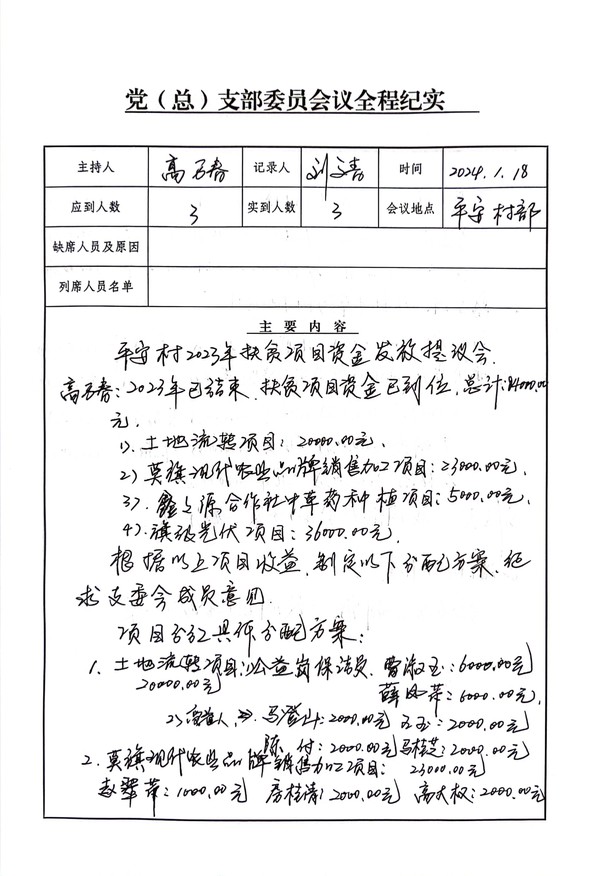 党（总）支部委员会议全程纪实
主持人 高万春 记录人 刘文春 时间 2024.1.18
应到人数 3 实到人数 3 会议地点 平安村部
缺席人员及原因
列席人员名单
主要内容
平安村2023年扶贫项目资金发放提议会.
高万春：2023年已结束，扶贫项目资金已到位，总计：84000.00
元.
1）、土地流转项目：20000.00元.
2）莫旗现代农业品牌销售加工项目：23000.00元.
3）、鑫之源合作社中草药种植项目：5000.00元.
4）、旗级光伏项目：36000.00元.
根据以上项目收益，制定以下分配方案，征
求支委会成员意见.
项目分红具体分配方案：
1、土地流转项目：1)公益岗保洁员 曹淑玉：6000.00元
20000.00元
薛凤荣：6000.00元.
2) 马登山：2000.00元 王玉：2000.00元
陈付：2000.00元 马桂芝：2000.00元
2、莫旗现代农业品牌销售加工项目： 23000.00元
赵翠苹：1000.00元 房桂清：2000.00元 高大权：2000.00元